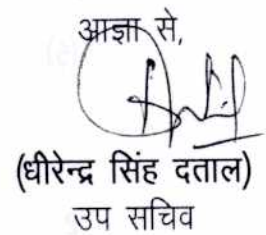 आज्ञा से,
(धीरेन्द्र सिंह दताल)
उप सचिव